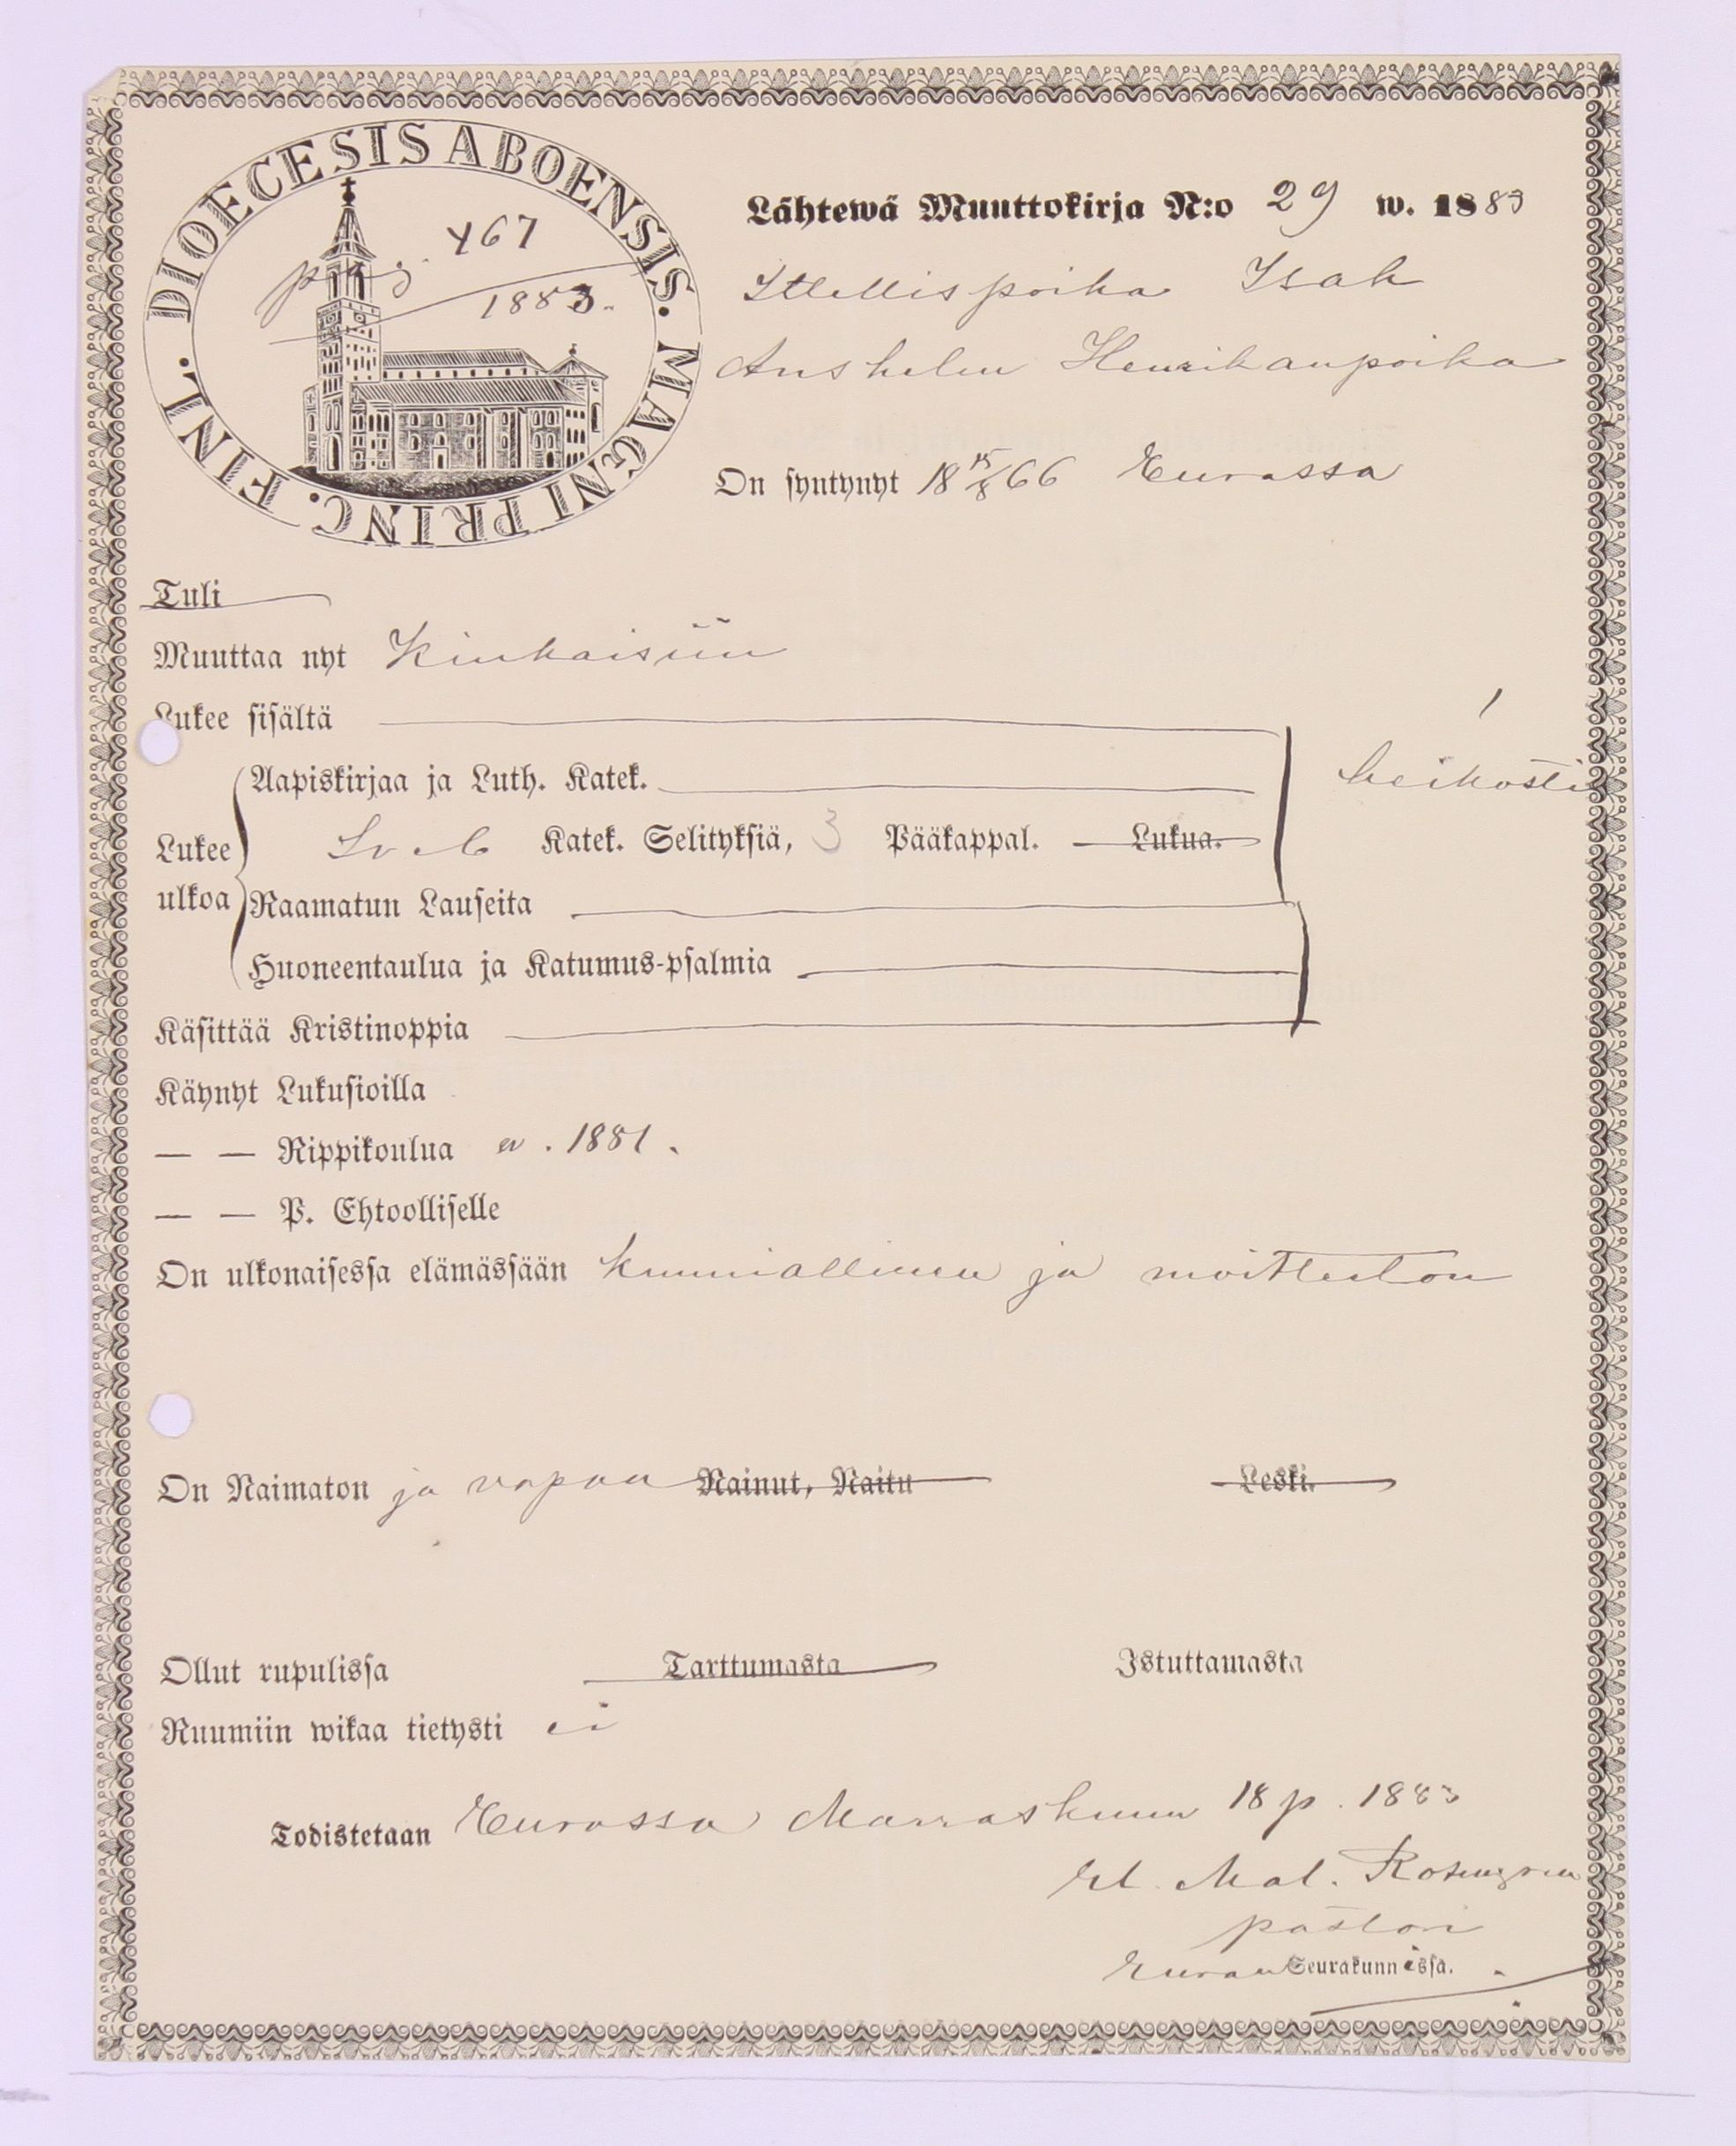 DIOECESIS ABOENSIS. MAGNI PRINC. FINL.
pag. 467
1883.
Lähtewä Muuttokirja N:o 29 w. 1883
Itellispoika Isak
Anshelm Henrikanpoika
On syntynyt 18 15/8 66 Eurassa
Tuli
Muuttaa nyt Kiukaisiin
Lukee sisältä
heikosti
Aapiskirjaa ja Luth. Katek.
Lukee ulkoa
Katek. Selityksiä, 3 Pääkappal. Lukua.
Raamatun Lauseita
Huoneentaulua ja Katumus-psalmia
Käsittää Kristinoppia
Käynyt Lukusioilla
— — Rippikoulua w. 1881.
— — P. Ehtoolliselle
On ulkonaisessa elämässään kunniallinen ja moitteeton
On Naimaton ja vapaa Nainut, Naitu Leski.
Ollut rupulissa Tarttumasta Istuttamasta
Ruumiin wikaa tietysti ei
Todistetaan Eurassa Marraskuun 18 p. 1883
Mat. Rosengren
pastori
Euran Seurakunnissa.